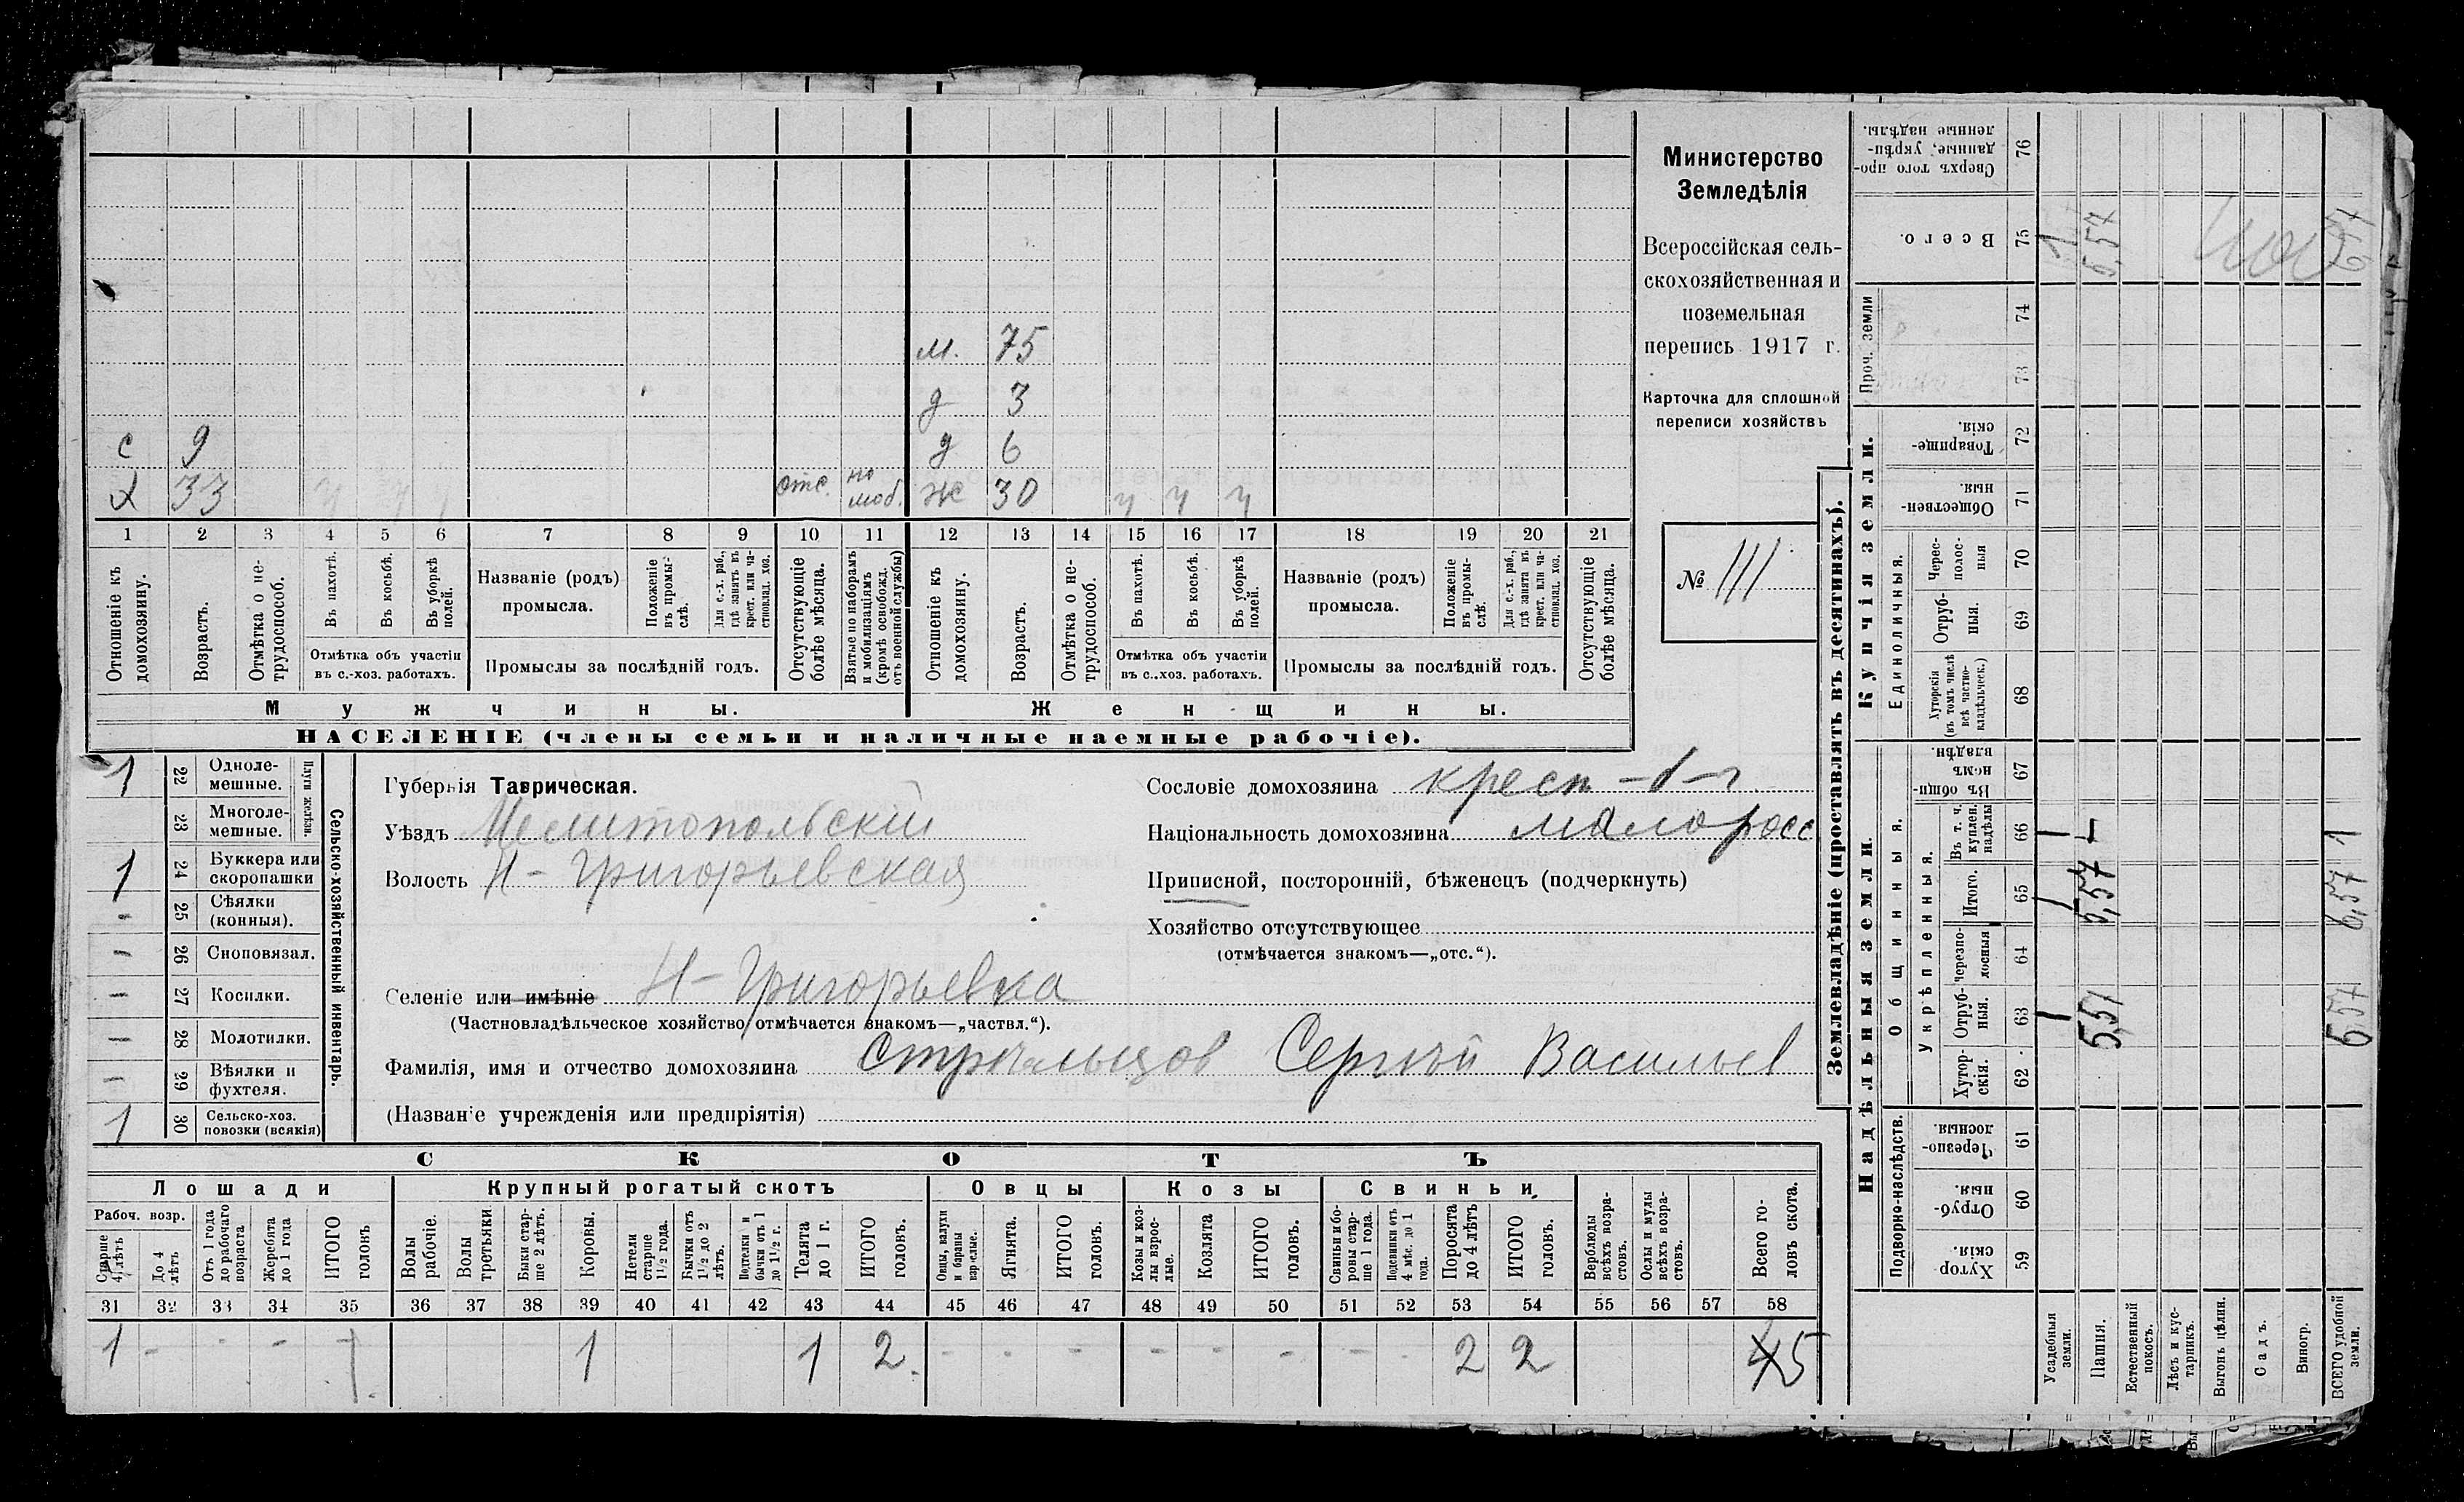 Министерство
Земледѣлія
Всероссійская сель-
скохозяйственная и
поземельная
перепись 1917 г.
Карточка для сплошной
переписи хозяйствъ
№ 111
м. 75
д 3
с 9 д 6
х 33 ч ч отс. по моб. ж 30 ч ч ч
1 2 3 4 5 6 7 8 9 10 11 12 13 14 15 16 17 18 19 20 21
Отношеніе къ домохозяину.
Возрастъ.
Отмѣтка о не-трудоспособ.
Въ пахотѣ.
Въ косьбѣ.
Въ уборкѣ полей.
Отмѣтка объ участіи
въ с.-хоз. работахъ.
Названіе (родъ)
промысла.
Положеніе въ промы-слѣ.
Для с.-х. раб., гдѣ занятъ въ крест. или ча-стновлад. хоз.
Промыслы за послѣдній годъ.
Отсутствующіе болѣе мѣсяца.
Взятые по наборамъ и мобилизаціямъ (кромѣ освобожд. отъ военной службы)
Отношеніе къ домохозяину.
Возрастъ.
Отмѣтка о не-трудоспособ.
Въ пахотѣ.
Въ косьбѣ.
Въ уборкѣ полей.
Отмѣтка объ участіи
въ с..хоз. работахъ.
Названіе (родъ)
промысла.
Положеніе въ промы-слѣ.
Для с.-х. раб., гдѣ занята въ крест. или ча-стновлад. хоз.
Промыслы за послѣдній годъ.
Отсутствующіе болѣе мѣсяца.
Мужчины. Женщины.
НАСЕЛЕНІЕ (члены семьи и наличные наемные рабочіе).
Сельско-хозяйственный инвентарь.
Плуги желѣзн.
1 22 Одноле-мешные.
23 Многоле-мешные.
1 24 Буккера или скоропашки
- 25 Сѣялки (конныя).
- 26 Сноповязал.
- 27 Косилки.
- 28 Молотилки.
- 29 Вѣялки и фухтеля.
1 30 Сельско-хоз. повозки (всякія)
Губернія Таврическая.
Уѣздъ Мелитопольскій
Волость Н-Григорьевская
Селеніе или имѣніе Н-Григорьевка
(Частновладѣльческое хозяйство отмѣчается знакомъ—„частвл.“).
Фамилія, имя и отчество домохозяина Стрѣльцов Сергѣй Васильев
(Названіе учрежденія или предпріятія)
Сословіе домохозяина
Національность домохозяина малоросс
Приписной, посторонній, бѣженецъ (подчеркнуть)
Хозяйство отсутствующее
(отмѣчается знакомъ—„отс.“).
СКОТЪ
Лошади Крупный рогатый скотъ Овцы Козы Свиньи
Рабоч. возр.
Старше 4 лѣтъ
До 4 лѣтъ
Отъ 1 года до рабочаго возраста
Жеребята до 1 года
ИТОГО головъ
Волы рабочіе.
Волы третьяки
Быки стар-ше 2 лѣтъ.
Коровы.
Нетели старше 1½ года.
Бычки отъ 1½ до 2 лѣтъ.
Подтелки и бычки отъ 1 до 1½ г.
Телята до 1 г.
ИТОГО головъ.
Овцы, валухи и бараны взрослые.
Ягнята.
ИТОГО головъ.
Козы и коз-лы взрос-лые.
Козлята
ИТОГО головъ.
Свиньи и бо-ровы стар-ше 1 года.
Подсвинки отъ 4 мѣс. до 1 года.
Поросята до 4 лѣтъ
ИТОГО головъ.
Верблюды всѣхъ возра-стовъ.
Ослы и мулы всѣхъ возра-стовъ.
Всего го-ловъ скота.
31 32 33 34 35 36 37 38 39 40 41 42 43 44 45 46 47 48 49 50 51 52 53 54 55 56 57 58
1 - - - 1 1 1 2. - - - - - - - - 2 2 5
Землевладѣніе (проставлять въ десятинахъ).
Купчія земли.
Надѣльныя земли.
Сверхъ того про-данные, укрѣп-ленные надѣлы. 76
Всего. 75 1 5,57
Проч. земли 74
73
Товарище-скія. 72
Обществен-ныя. 71
Единоличныя.
Черес-полос-ныя 70
Отруб-ныя. 69
Хуторскія (въ томъ числѣ всѣ частно-владѣльческ.) 68
Общинныя.
Въ общин-номъ владѣн. 67
Укрѣпленныя.
Въ т. ч. куплен. надѣлы 66
Итого. 65 1 5,57 6,57
черезпо-лосныя 64
Отруб-ныя. 63 1 5,57 6,57
Хутор-скія. 62
Подворно-наслѣдств.
Черезпо-лосныя 61
Отруб-ныя. 60
Хутор-скія. 59
Усадебныя земли.
Пашня.
Естественный покосъ.
Лѣсъ и кус-тарникъ.
Выгонъ цѣлин.
Садъ.
Виногр.
ВСЕГО удобной земли.